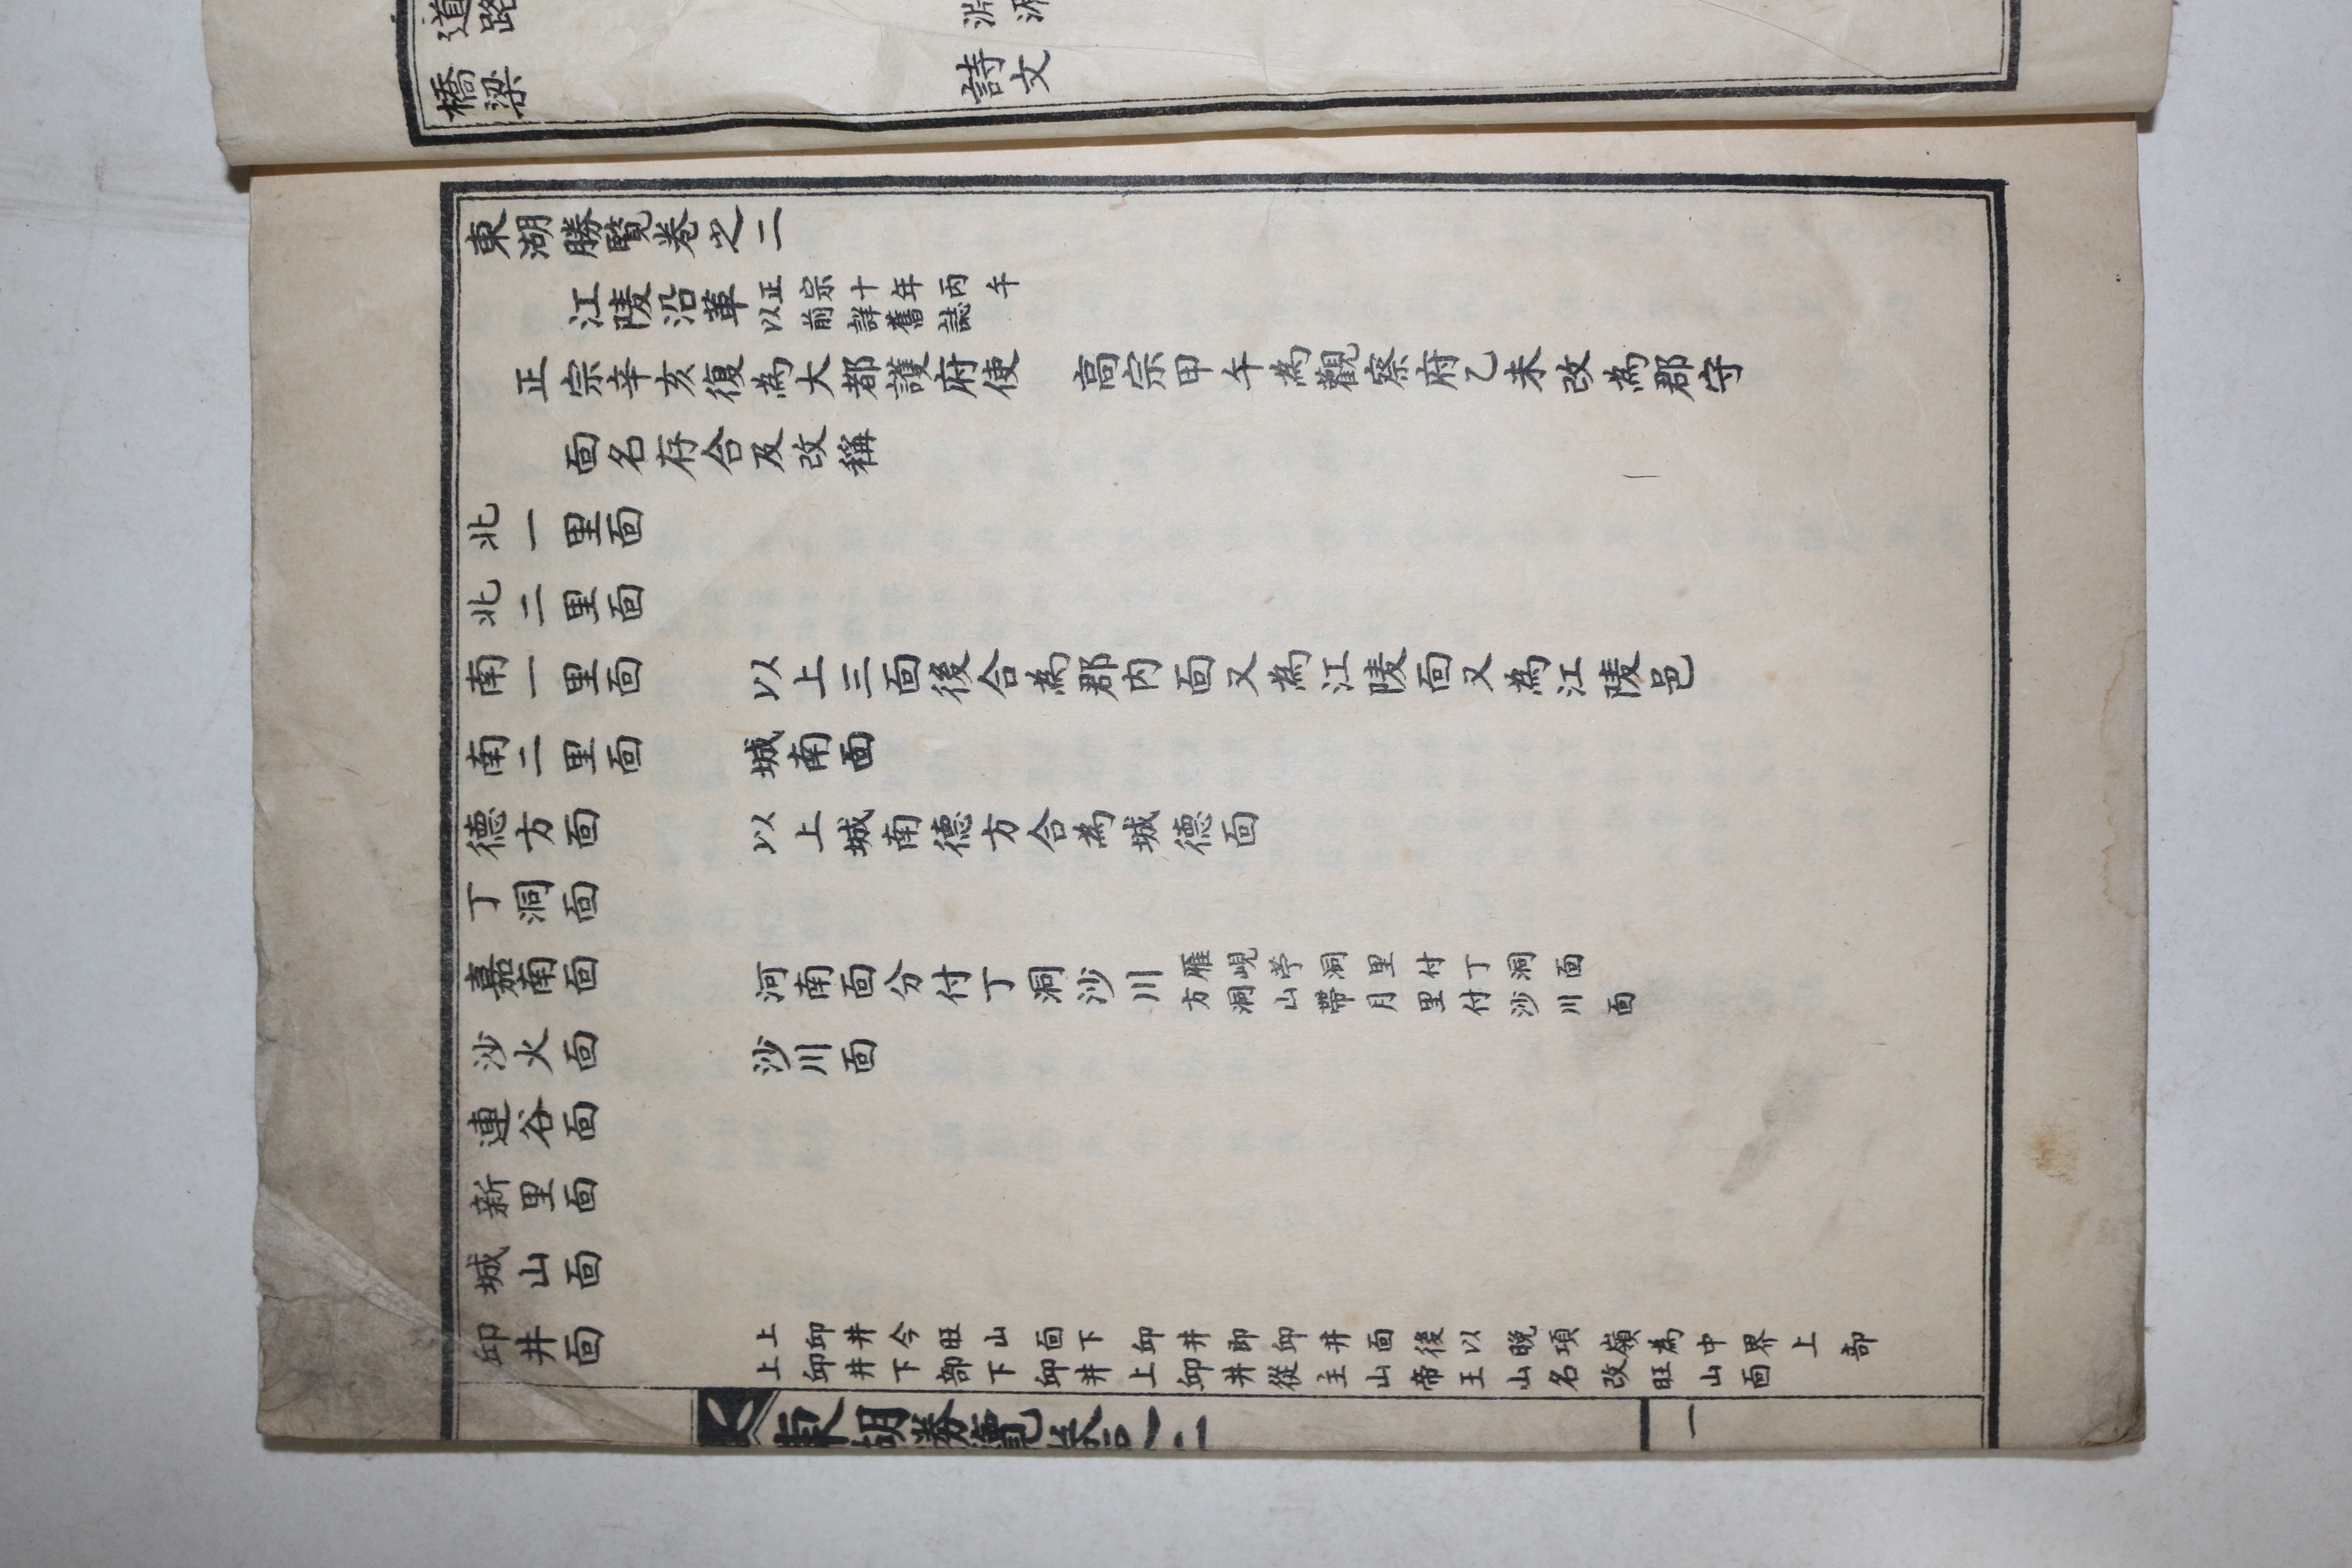 道路 淵源
橋梁 詩文
東湖勝覽卷之二
江陵沿革 正宗十年丙午
以前詳舊誌
正宗辛亥復為大都護府使 高宗甲午為觀察府乙未改為郡守
面名存合及改稱
北一里面
北二里面
南一里面 以上三面後合為郡内面又為江陵面又為江陵邑
南二里面 城南面
德方面 以上城南德方合為城德面
丁洞面
嘉南面 河南面分付丁洞沙川 雁峴斈洞里付丁洞面
方洞山帶月里付沙川面
沙火面 沙川面
連谷面
新里面
城山面
邱井面 上邱井今旺山面下邱井即邱井面後以晩項嶺為中界上部
上邱井下部下邱井上邱井從主山帝王山名改旺山面
東湖勝覽卷之二 一